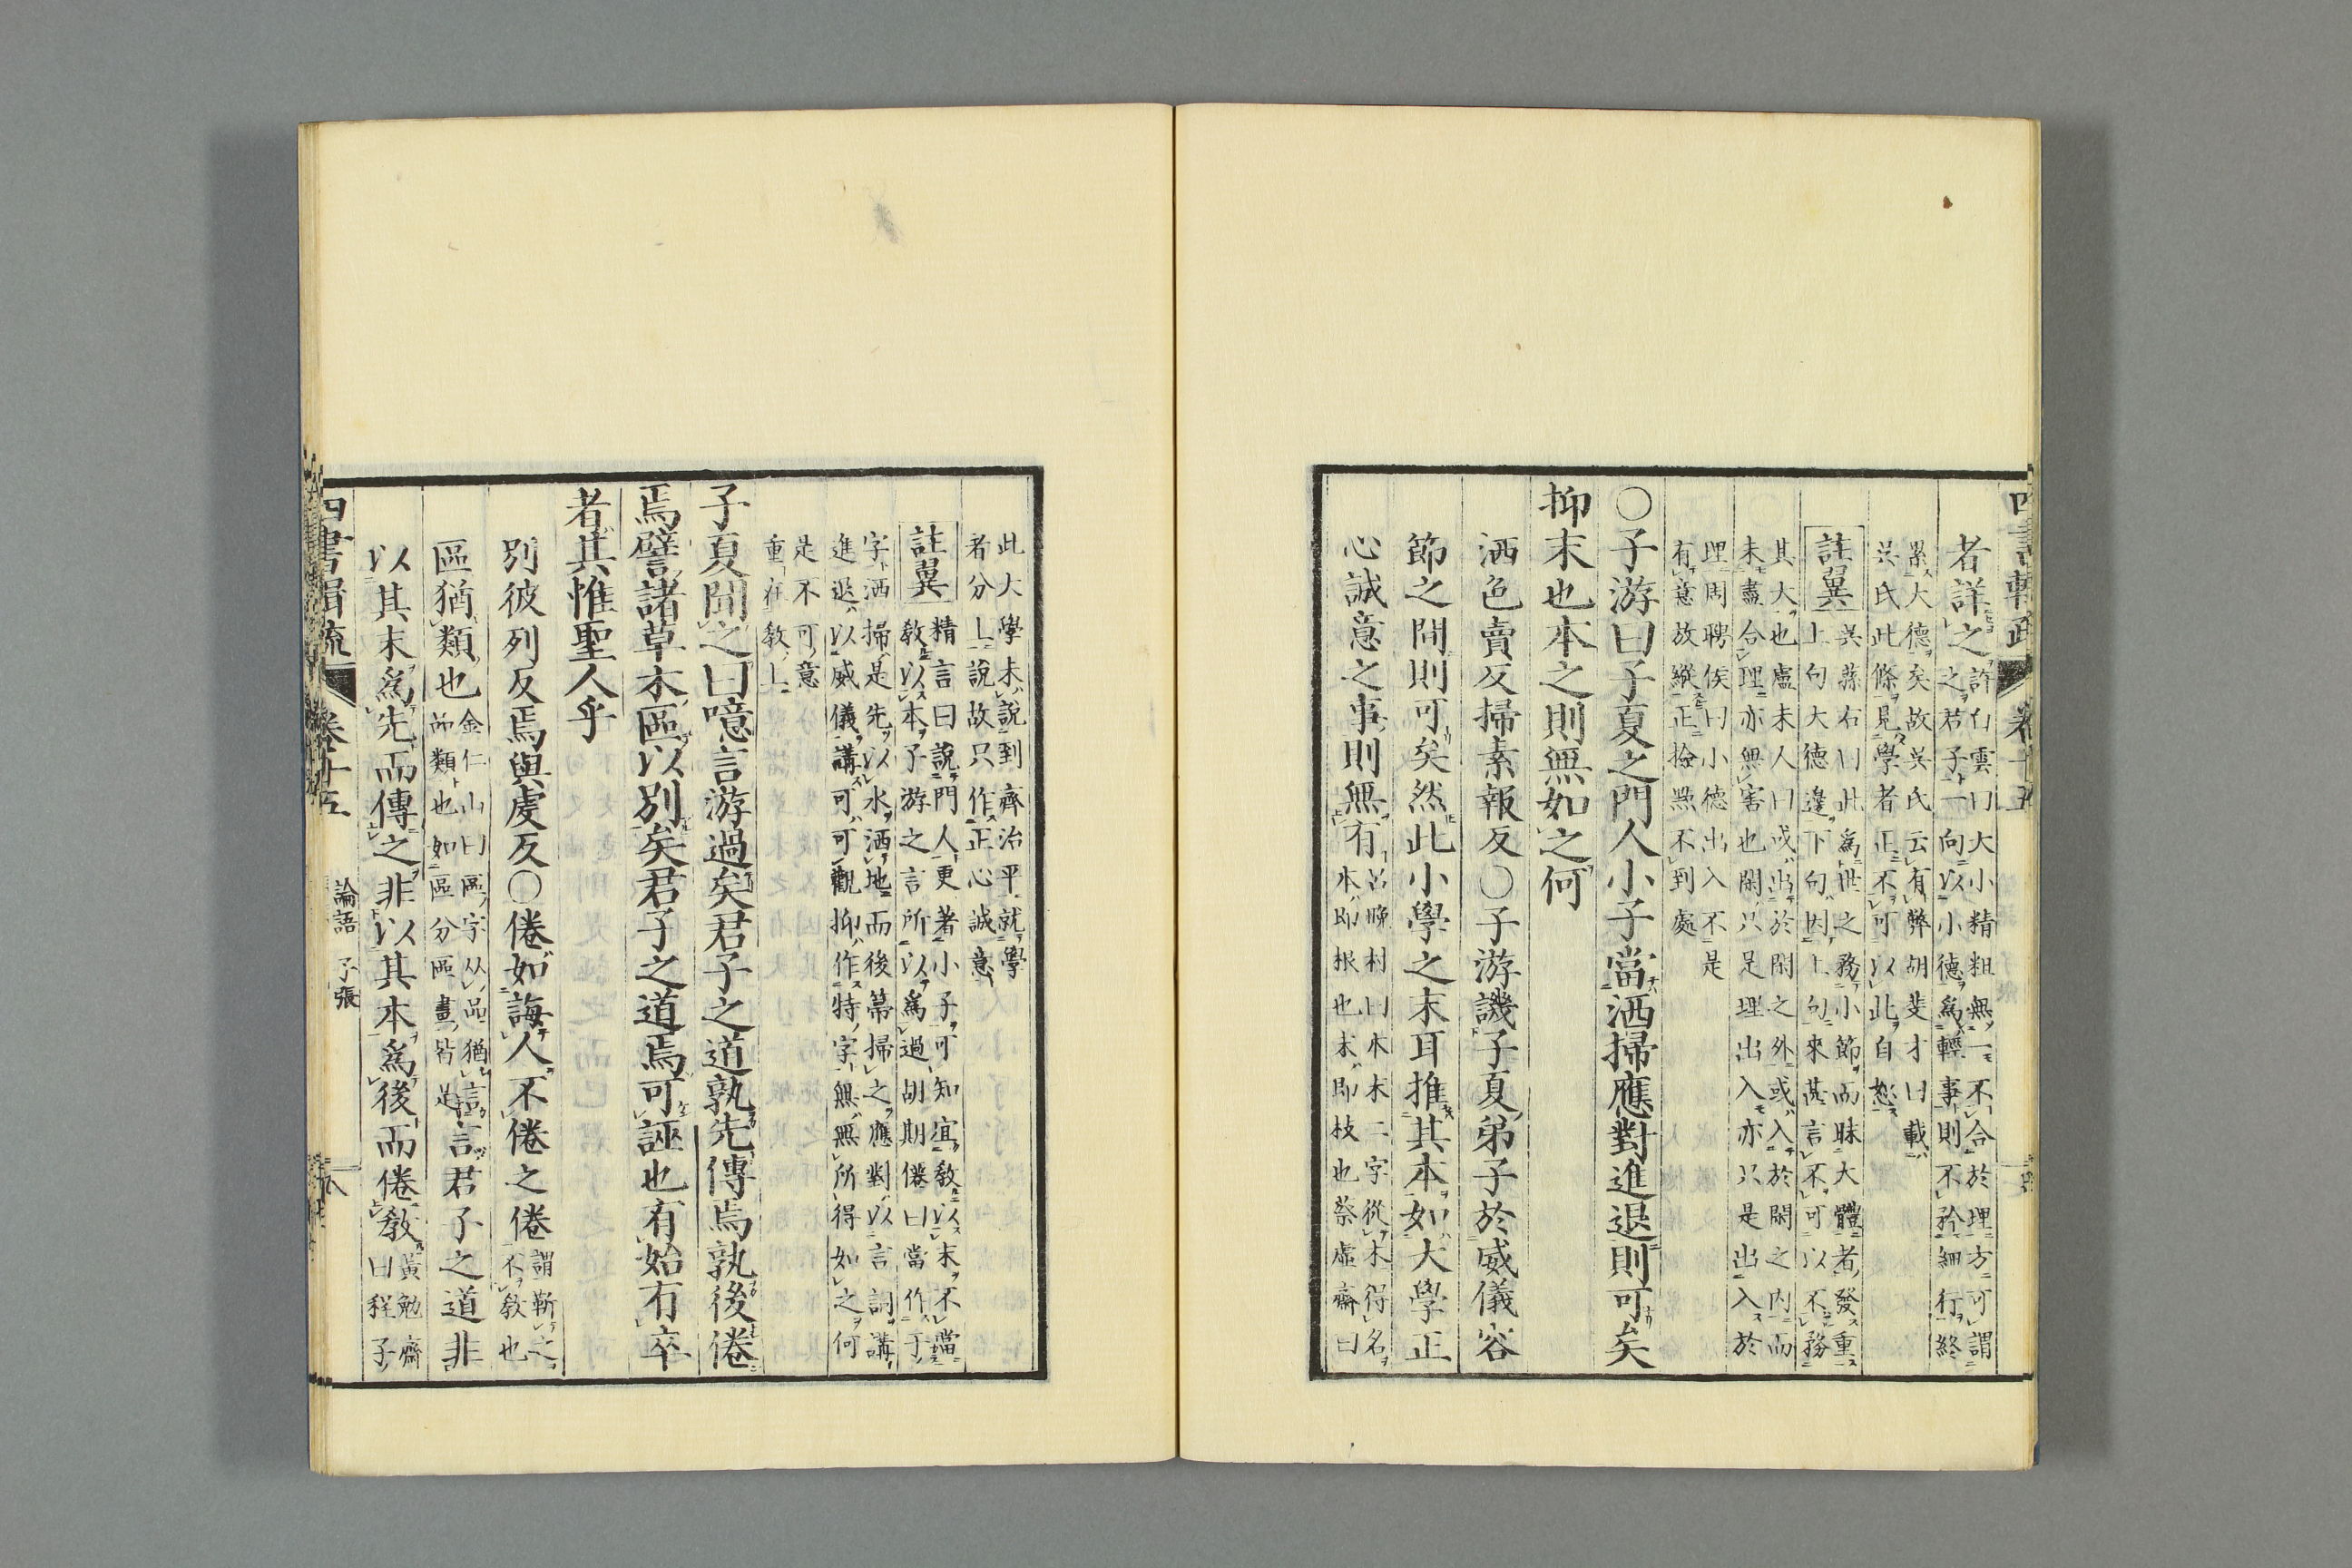 四書輯疏 卷十五
者詳之許白雲曰大小精粗無一不合於理方可謂
之君子一向以小德爲輕事則不矜細行終
累大德矣故吳氏云有弊胡斐才曰載
吳氏此條見學者正不可以此自恕
註翼吳蓀右曰此爲世之務小節而昧大體者發重
上句大德邊下句因上句來甚言不可以不務
其大也盧未人曰或出於閑之外或入於閑之内而
未盡合理亦無害也閑只是理出入亦只是出入於
理周聘侯曰小德出入不是
有意放縱正撿點不到處
○子游曰子夏之門人小子當洒掃應對進退則可矣
抑末也本之則無如之何
洒色賣反掃素報反○子游譏子夏弟子於威儀容
節之間則可矣然此小學之末耳推其本如大學正
心誠意之事則無有呂晚村曰本末二字從木得名
本即根也末即枝也蔡虛齋曰
此大學未說到齊治平就學
者分上說故只作正心誠意
註翼精言曰說門人更著小子可知宜教以末不當
教以本子游之言所以爲過胡期僊曰當作于
字洒掃是先以水洒地而後箒掃之應對以言詞講
進退以威儀講可可觀抑作特字無無所得如之何
是不可意
重在教上
子夏聞之曰噫言游過矣君子之道孰先傳焉孰後倦
焉譬諸草木區以別矣君子之道焉可誣也有始有卒
者其惟聖人乎
別彼列反焉與虔反○倦如誨人不倦之倦謂靳之
不教也
區猶類也金仁山曰區字从品猶言
所類也如區分區畫皆是言君子之道非
以其末爲先而傳之非以其本爲後而倦教黃勉齋
曰程子
四書輯疏 卷十五 論語 子張 八